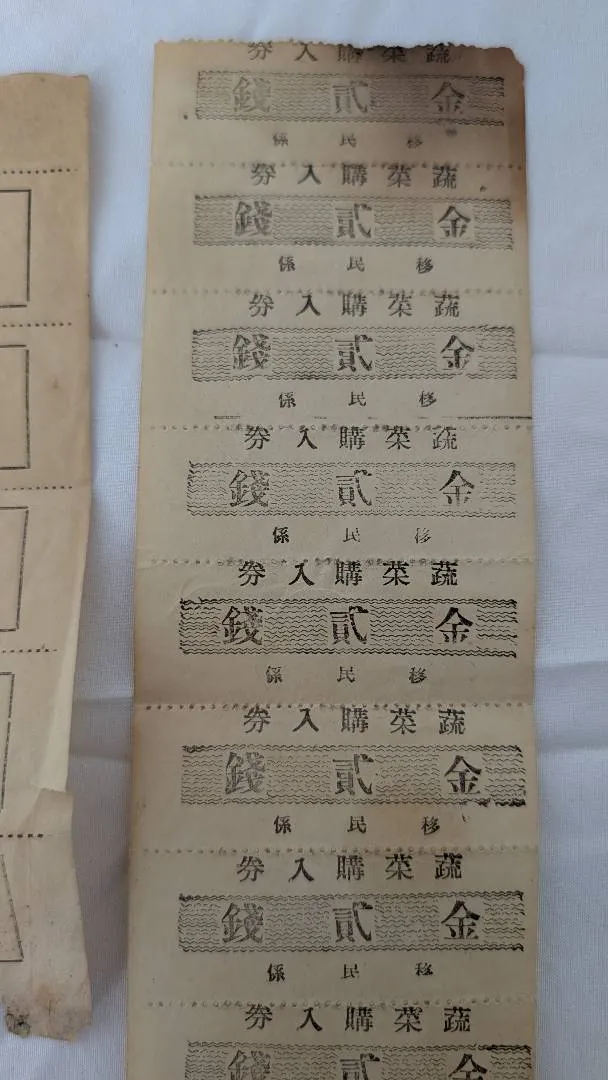 蔬菜購入券
金貳錢
移民係
蔬菜購入券
金貳錢
移民係
蔬菜購入券
金貳錢
移民係
蔬菜購入券
金貳錢
移民係
蔬菜購入券
金貳錢
移民係
蔬菜購入券
金貳錢
移民係
蔬菜購入券
金貳錢
移民係
蔬菜購入券
金貳錢